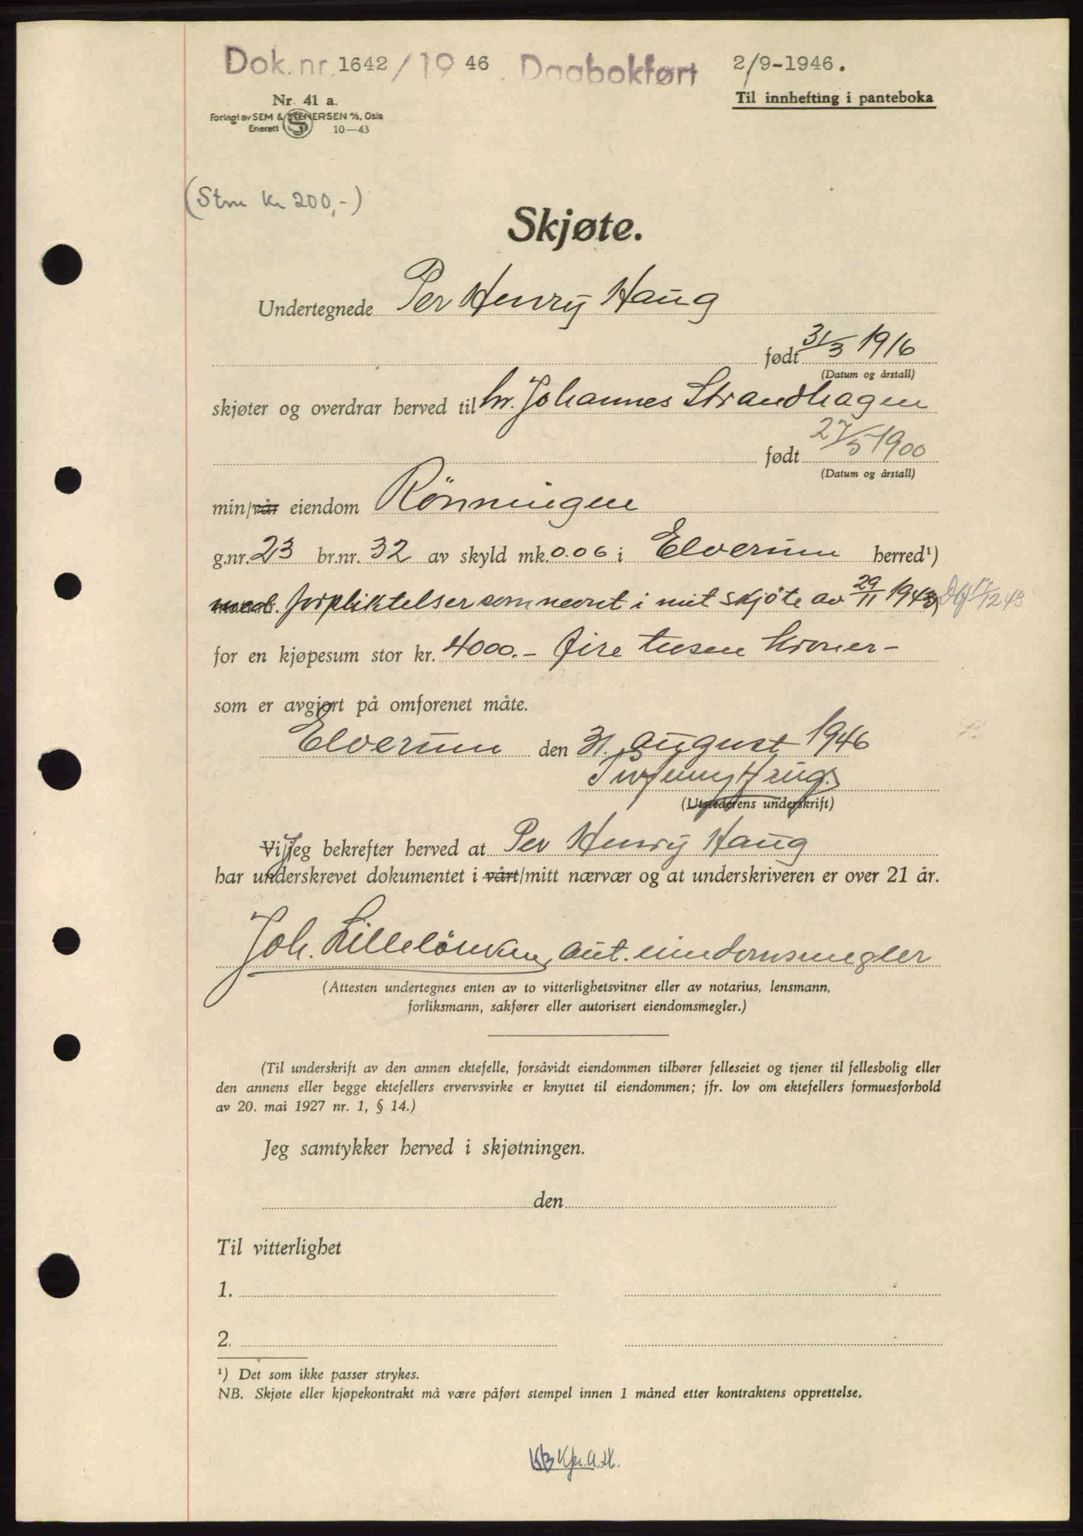 Dok. nr. 1642/1946. Dagbokført 2/9-1946.
Til innhefting i panteboka
Nr. 41 a.
Forlagt av SEM & STENERSEN A/S, Oslo
Enerett S 10—43
(Stm kr 200,-)
Skjøte.
Undertegnede Per Henry Haug
født 31/3 1916
(Datum og årstall)
skjøter og overdrar herved til hr. Johannes Strandhagen
født 27/5 1900
(Datum og årstall)
min/vår eiendom Rönningen
g.nr. 23 br.nr. 32 av skyld mk. 0.06 i Elverum herred¹)
med forpliktelser som nevnt i mit skjöte av 29/11 1943 Dbf 17/12 43
for en kjøpesum stor kr. 4000.- Fire tusen kroner-
som er avgjort på omforenet måte.
Elverum den 31. august 1946
Per Henry Haug.
(Utstederens underskrift)
Vi/Jeg bekrefter herved at Per Henry Haug
har underskrevet dokumentet i vårt/mitt nærvær og at underskriveren er over 21 år.
Joh. aut. eiendomsmegler
(Attesten undertegnes enten av to vitterlighetsvitner eller av notarius, lensmann,
forliksmann, sakfører eller autorisert eiendomsmegler.)
(Til underskrift av den annen ektefelle, forsåvidt eiendommen tilhører felleseiet og tjener til fellesbolig eller
den annens eller begge ektefellers ervervsvirke er knyttet til eiendommen; jfr. lov om ektefellers formuesforhold
av 20. mai 1927 nr. 1, § 14.)
Jeg samtykker herved i skjøtningen.
den
Til vitterlighet
1.
2.
¹) Det som ikke passer strykes.
NB. Skjøte eller kjøpekontrakt må være påført stempel innen 1 måned etter kontraktens opprettelse.